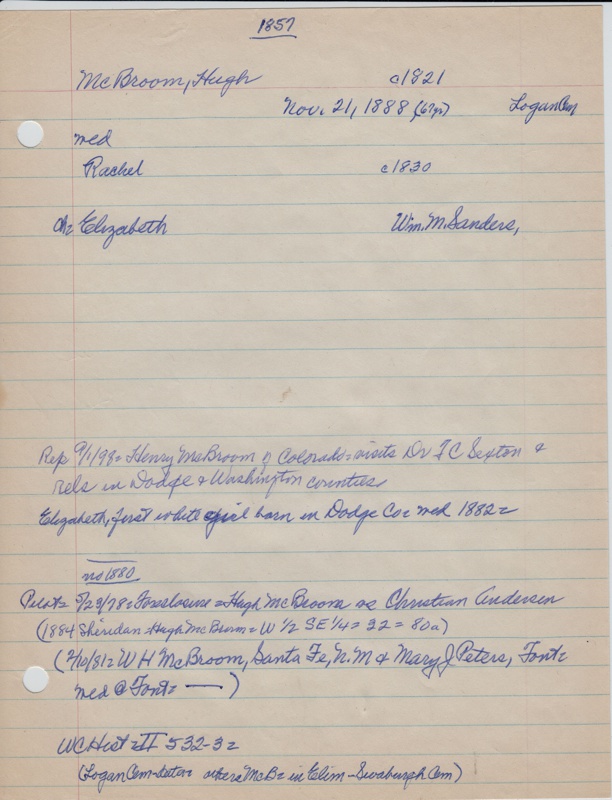 1857
McBroom, Hugh c1821
Nov. 21, 1888 (67yr) Logan Cem
med
Rachel c1830
Ch= Elizabeth Wm. M. Sanders,
Rep 9/1/98= Henry McBroom of Colorado= visits Dr I C Sexton &
rels in Dodge & Washington counties
Elizabeth, first white girl born in Dodge Co= med 1882=
no 1880
Pilot= 5/23/78= Foreclosure= Hugh McBroom vs Christian Andersen
(1884 Sheridan- Hugh McBroom= W 1/2 SE 1/4= 32= 80a)
(2/10/81= W H McBroom, Santa Fe, N. M & Mary J Peters, Font=
med @ Font= — )
WC Hist= II 532-3=
(Logan Cem- others McB= in Elim- Swaburgh Cem)